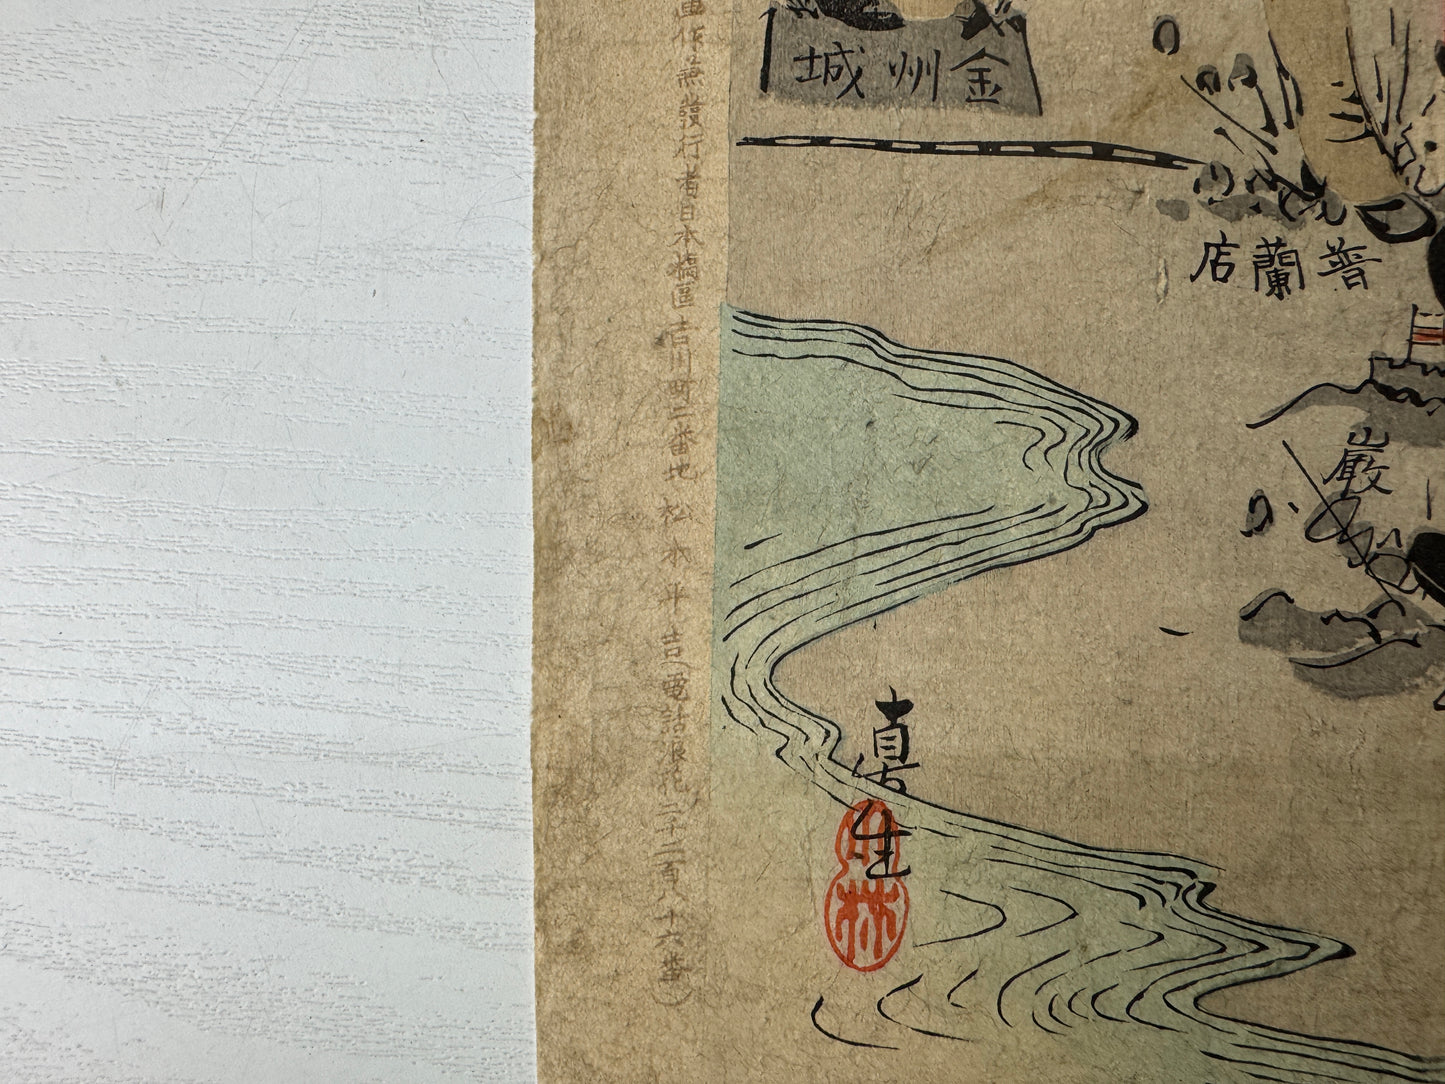 城州金
店蘭普
巖
直
生
林
作兼發行者日本橋區吉川町二番地 松木平吉(電話浪花二千二百八十六番)